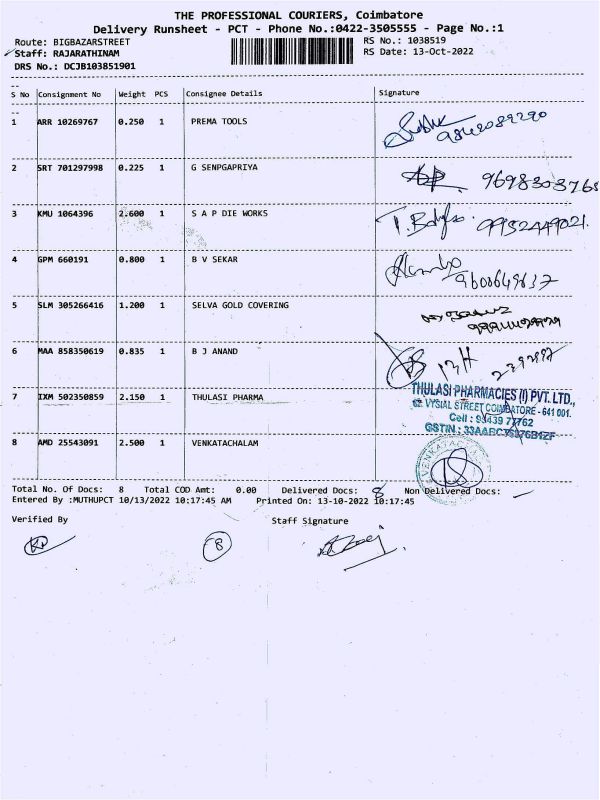 THE PROFESSIONAL COURIERS, Coimbatore
Delivery Runsheet - PCT - Phone No.:0422-3505555 - Page No.:1
Route: BIGBAZARSTREET RS No.: 1038519
Staff: RAJARATHINAM RS Date: 13-Oct-2022
DRS No.: DCJB103851901
S No Consignment No Weight PCS Consignee Details Signature
1 ARR 10269767 0.250 1 PREMA TOOLS
9842089290
2 SRT 701297998 0.225 1 G SENPGAPRIYA
9698303765
3 KMU 1064396 2.600 1 S A P DIE WORKS
9952449021.
4 GPM 660191 0.800 1 B V SEKAR
9600649637
5 SLM 305266416 1.200 1 SELVA GOLD COVERING
6 MAA 858350619 0.835 1 B J ANAND
7 IXM 502350859 2.150 1 THULASI PHARMA
THULASI PHARMACIES (I) PVT. LTD.,
62, VYSIAL STREET COIMBATORE - 641 001.
Cell : 98439 77762
GSTIN :
8 AMD 25543091 2.500 1 VENKATACHALAM
Total No. Of Docs: 8 Total COD Amt: 0.00 Delivered Docs: 8 Non Delivered Docs: -
Entered By :MUTHUPCT 10/13/2022 10:17:45 AM Printed On: 13-10-2022 10:17:45
Verified By Staff Signature
8